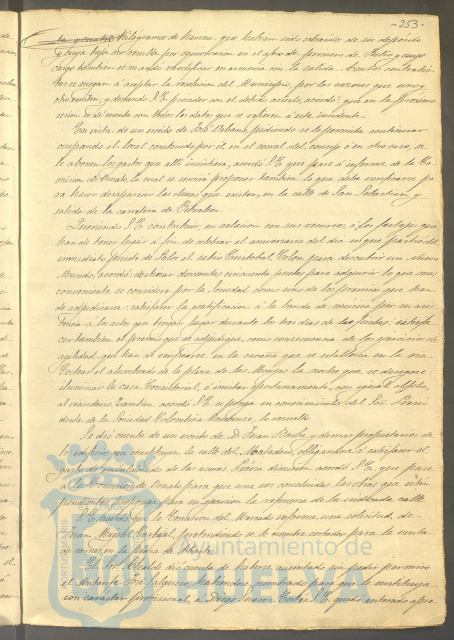 253.
Kilogramos de harina, que habian sido extraidos de su deposito
y cuya baja no resulta por equivocacion en el aforo de primero de Julio y cuyo
cargo tambien se mandó modificar en armonía con la salida. Ambos contratis-
tas se niegan á aceptar la resolucion del Municipio, por las razones que uno y
otro emiten; y deseando S. E. proceder con el debido acierto, acordó: que en la proxima
sesion se dé cuenta con todos los datos que se refieren á este incidente.
En vista de un escrito de José Urbano pidiendo se le permita continuar
ocupando el local construido por él en el corral del consejo ó en otro caso, se
le abonen los gastos que allí invirtiera, acordó S. E. que pase á informe de la Co-
mision de Ornato, la cual se servirá proponer tambien lo que deba verificarse pa-
ra hacer desaparecer las obras que existen, en la calle de San Sebastian y
salida de la carretera de Gibraleon.
Queriendo S. E. contribuir, en relacion con sus recursos, á los festejos que
han de tener lugar á fin de celebrar el aniversario del dia en que partió del
inmediato puerto de Palos el sabio Cristobal Colon para descubrir un Nuevo
Mundo, acordó: destinar doscientas cincuenta pesetas para adquirir lo que mas
conveniente se considere por la Sociedad como uno de los premios que han
de adjudicarse: satisfacer la gratificacion á la banda de música por su asis-
tencia á los actos que tengan lugar durante los tres dias de las fiestas: satisfa-
cer tambien el premio que se adjudique, como consecuencia de los ejercicios de
agilidad que han de verificarse en la cucaña que se establecerá en la ria.
Costear el alumbrado de la plaza de las Monjas la noche que se designe:
iluminar la casa Consistorial, é invitar oportunamente, con igual objeto,
al vecindario. Tambien acordó S. E. se ponga en conocimiento del Sor. Presi-
dente de la Sociedad Colombina Onubense, lo resuelto.
Se dió cuenta de un escrito de D. Juan Barba y demas propietarios de
los edificios que constituyen la calle del Matadero, obligandose á satisfacer el
gasto de de las aceras. Previa discusion acordó S. E. que pase
á la Comision de Ornato para que una vez concluidas las obras que están
pendientes, proponga para su ejecucion la reforma de la indicada calle.
S. E. acordó que la Comision del Mercado informe una solicitud de
Juan Miguel pretendiendo se le nombre cortador para la venta
de carnes en la plaza de Abastos.
El Sor. Alcalde dió cuenta de haberse ausentado sin pedir permiso
el Matarife José Salguero, habiendo nombrado para que le sustituya
con caracter provisional á Diego Suarez Cortés. S. E. quedó enterado apro-
PORTUS MARIS
Ayuntamiento de
HUELVA